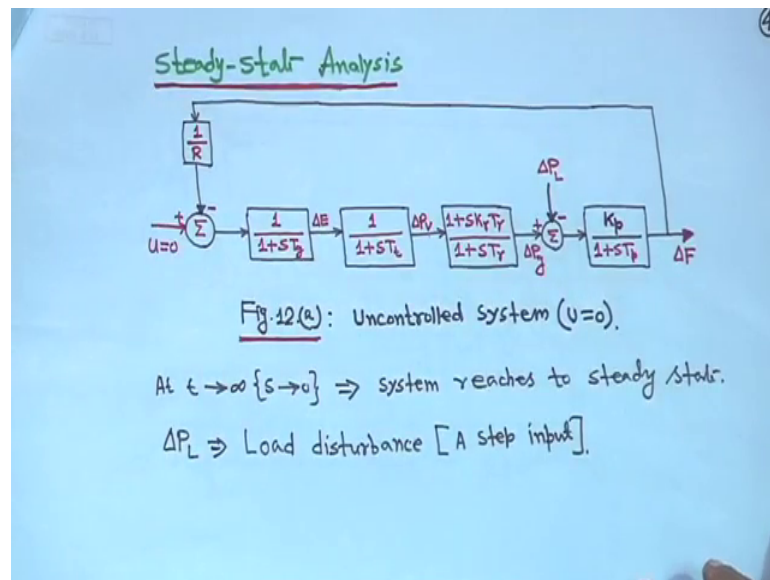 4
Steady-State Analysis
1
R
ΔP_L
+ -
U=0 Σ 1 ΔE 1 ΔP_V 1+SK_rT_r + Σ - K_p
1+ST_g 1+ST_t 1+ST_r ΔP_g 1+ST_p ΔF
Fig.12(a): Uncontrolled system (U=0).
At t→∞ {S→0} ⇒ system reaches to steady state.
ΔP_L ⇒ Load disturbance [A step input].